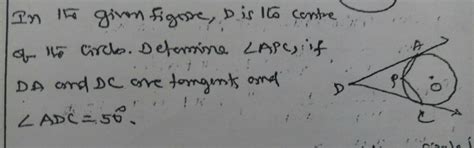 In the given figure, D is the centre
of the circle. Determine ∠APC, if
DA and DC are tangents and
∠ADC = 50°.
A
P
D
O
C